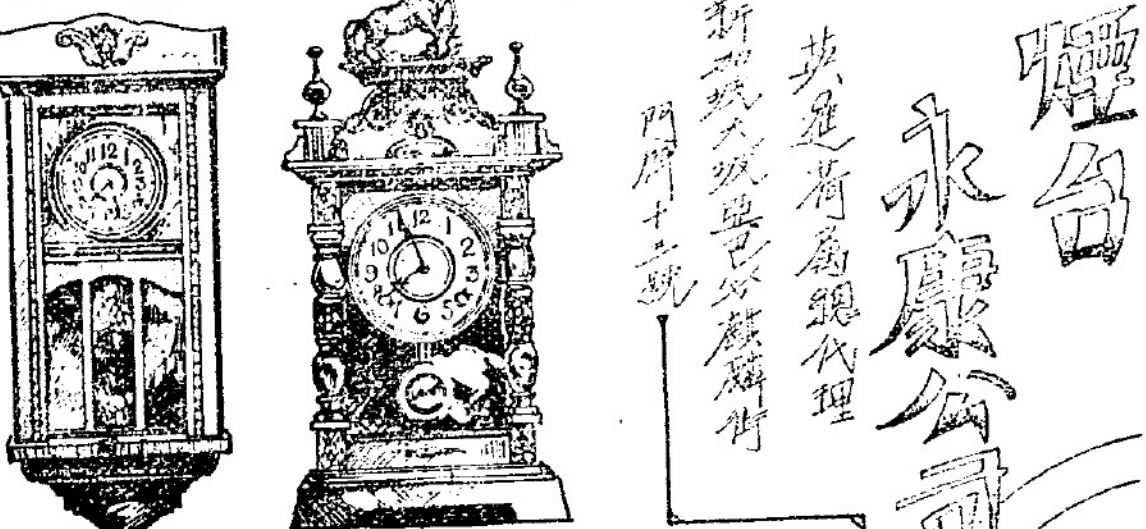 煙台
永康公司
英暹荷屬總代理
新嘉坡大坡要己双麒麟街
門牌十二號
12
1
2
3
5
6
8
9
10
11